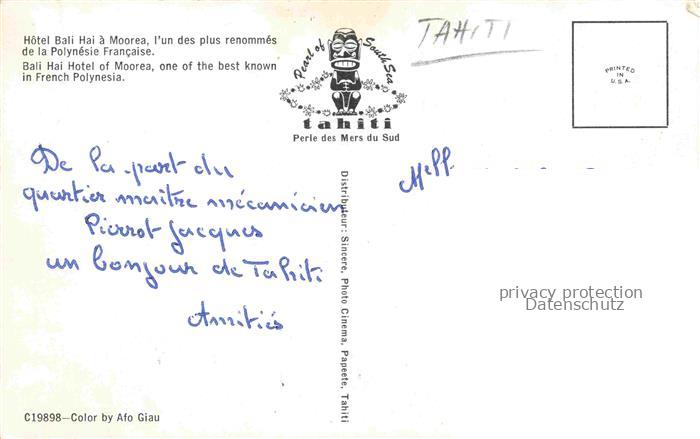 Hôtel Bali Hai à Moorea, l'un des plus renommés
de la Polynésie Française.
Bali Hai Hotel of Moorea, one of the best known
in French Polynesia.
Pearl of South Sea
tahiti
Perle des Mers du Sud
TAHITI
PRINTED
IN
U.S.A.
De la part du
quartier maitre mécanicien
Pierrot Jacques
un bonjour de Tahiti
Amitiés
Distributeur: Sincere, Photo Cinema, Papeete, Tahiti
Mell
privacy protection
Datenschutz
C19898—Color by Afo Giau